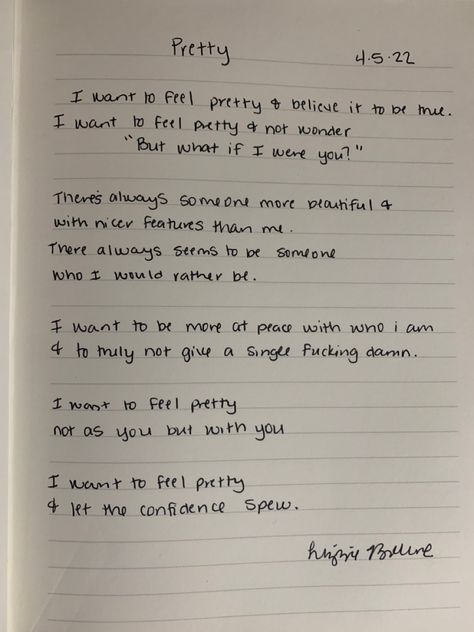 Pretty
4.5.22
I want to feel pretty & believe it to be true.
I want to feel pretty & not wonder
"But what if I were you?"
There's always someone more beautiful &
with nicer features than me.
There always seems to be someone
who I would rather be.
I want to be more at peace with who i am
& to truly not give a single fucking damn.
I want to feel pretty
not as you but with you
I want to feel pretty
& let the confidence spew.